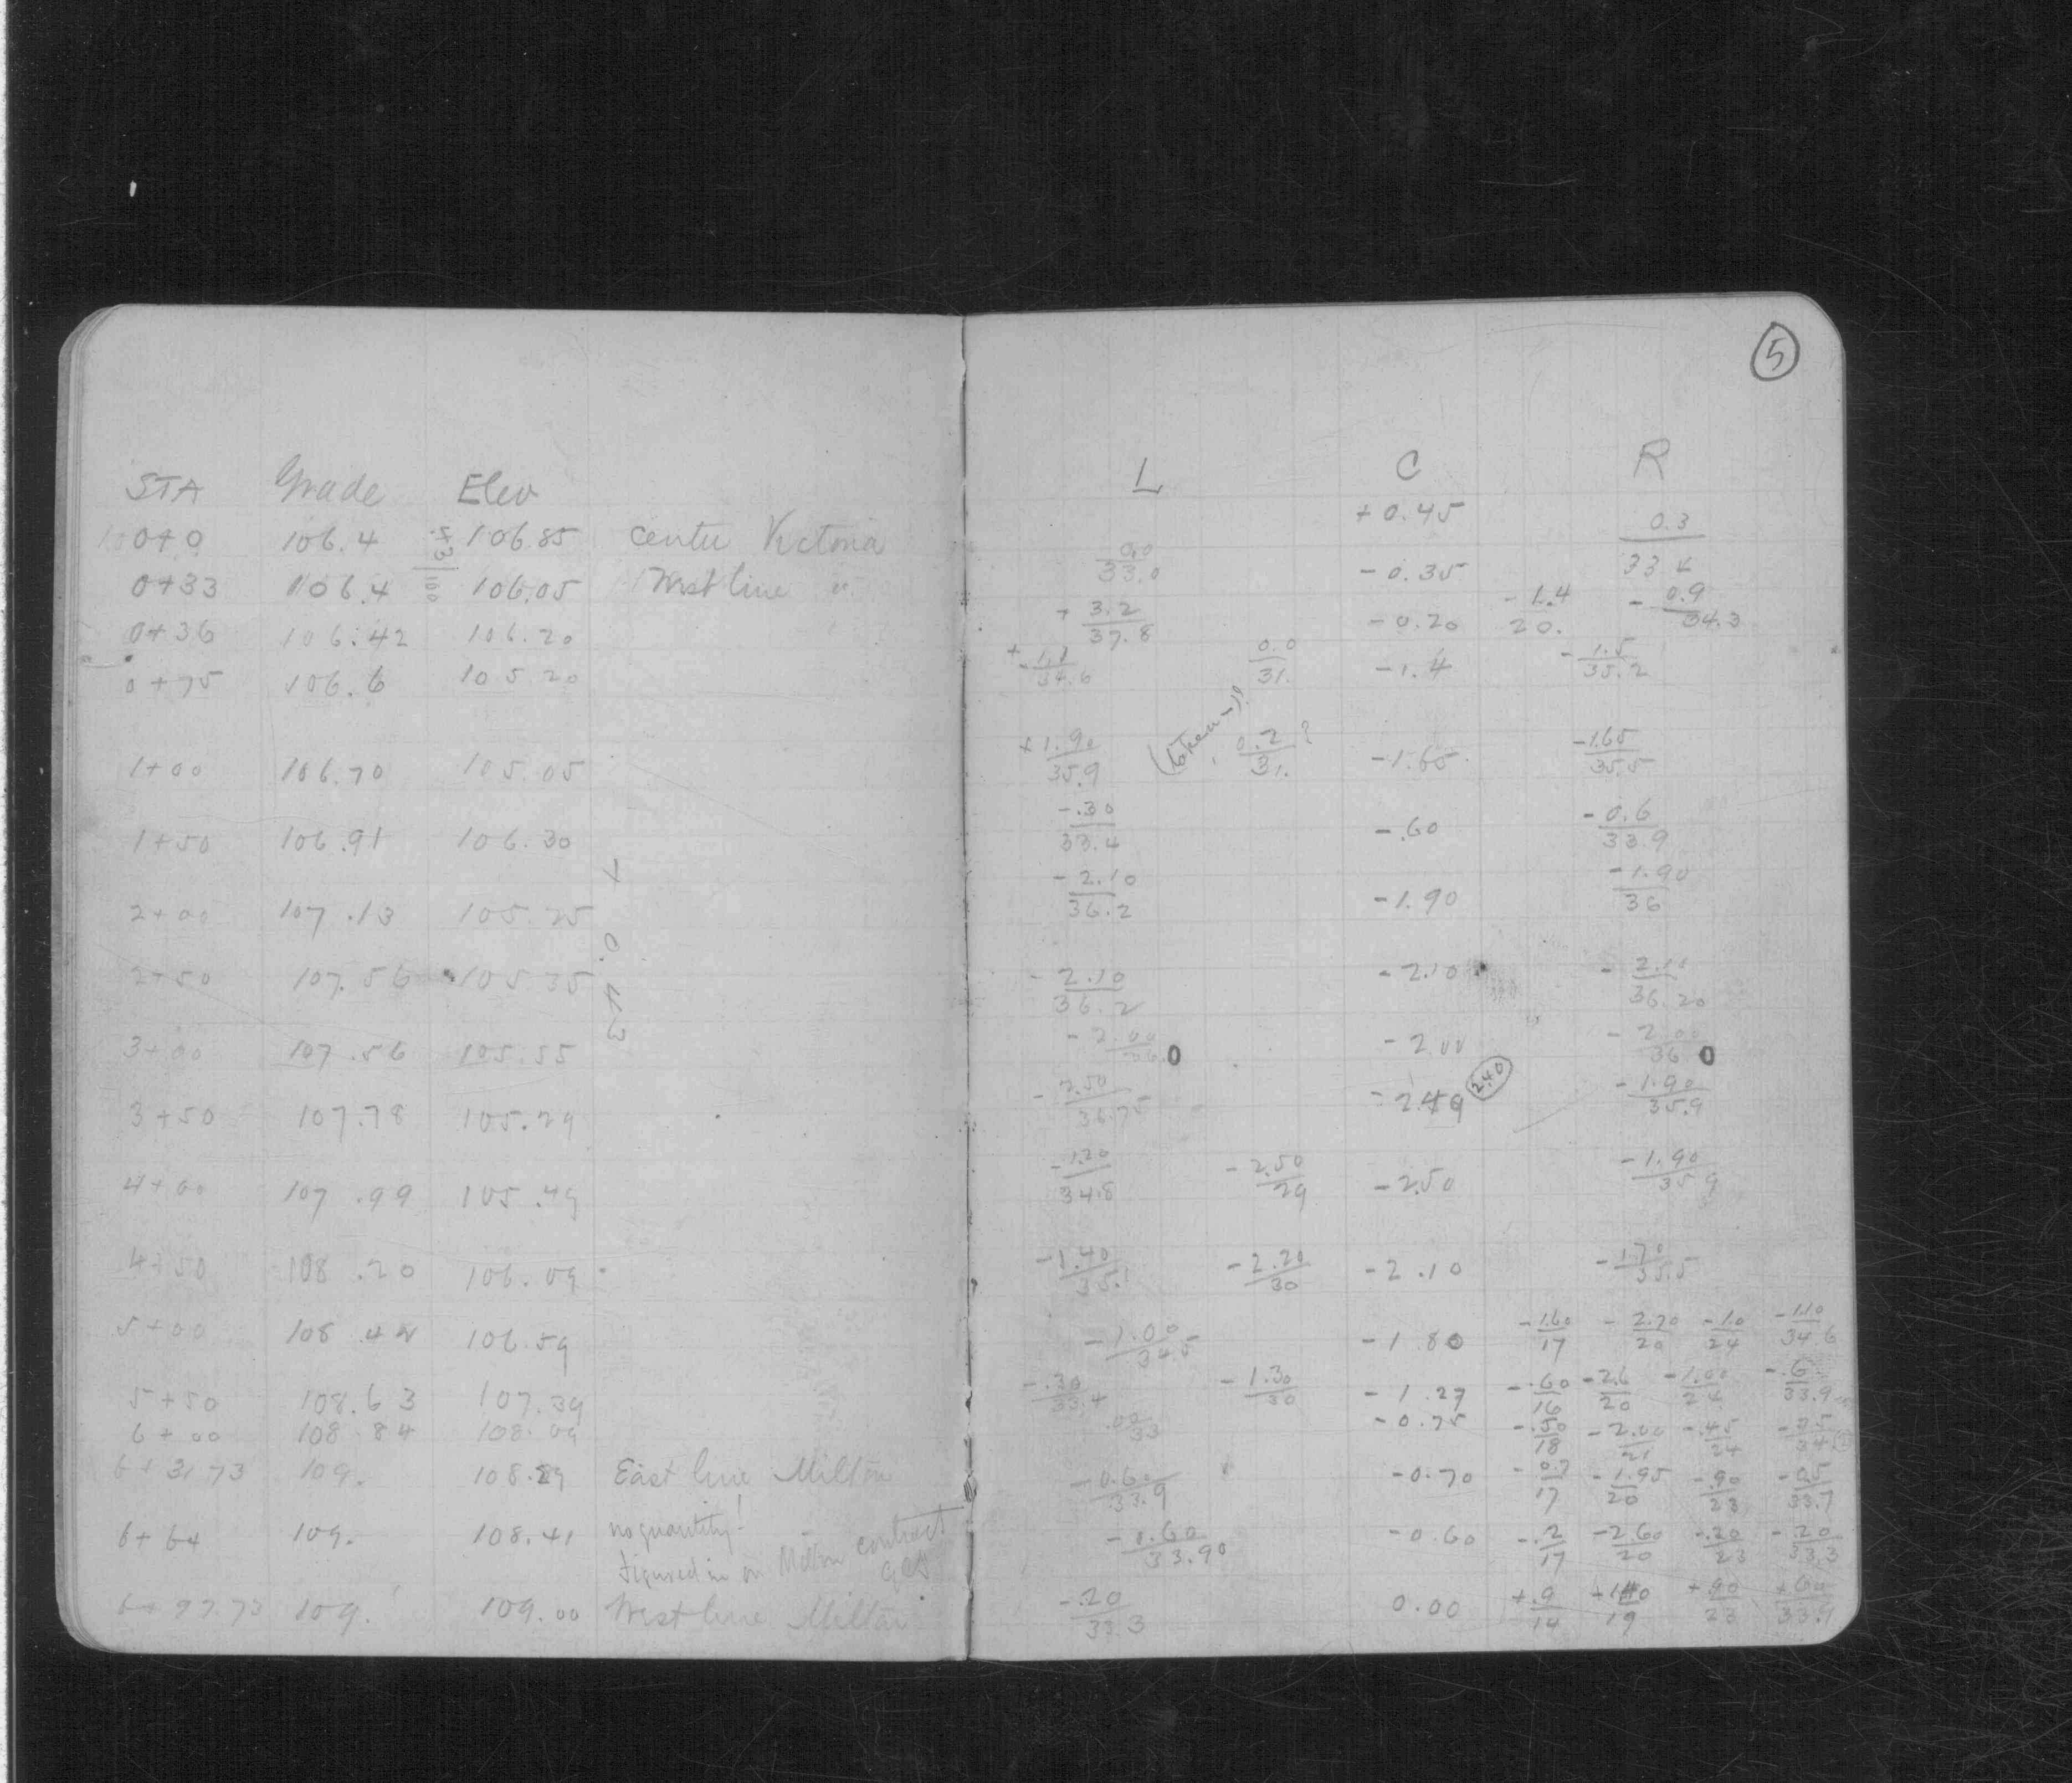 5
STA Grade Elev
0+0 106.4 106.85 center Victoria
0+33 106.4 106.05 West line "
0+36 106.42 106.20
0+75 106.6 105.20
1+00 106.70 105.05
1+50 106.91 106.30
2+00 107.13 105.25
2+50 107.56 105.35
3+00 107.56 105.55
3+50 107.78 105.29
4+00 107.99 105.49
4+50 108.20 106.09
5+00 108.42 106.59
5+50 108.63 107.39
6+00 108.84 108.09
6+31.73 109. 108.29 East line Milton
6+64 109. 108.41 no quantity!
figured in on Milton contract
6+97.73 109. 109.00 West line Milton
+ 0.43
L C R
+0.45
0.0/33.0 -0.35 0.3/33.4
+3.2/37.8 -0.20 -1.4/20. -0.9/34.3
0.0/31. -1.4 -1.5/35.2
+1.90/35.9 0.2/31.? -1.65 -1.65/35.5
-.30/33.4 -.60 -0.6/33.9
-2.10/36.2 -1.90 -1.90/36
-2.10/36.2 -2.10 -2.10/36.20
-2.00/36.0 -2.00 -2.00/36.0
-2.50/36.75 -2.49 2.40 -1.90/35.9
-1.20/34.8 -2.50/29 -2.50 -1.90/35.9
-1.40/35.1 -2.20/30 -2.10 -1.70/35.5
-1.00/34.5 -1.80 -1.60/17 -2.70/20 -1.0/24 -1.10/34.6
-.30/33.4 -1.30/30 -1.27 -.60/16 -2.6/20 -1.00/24 -.6/33.9
.00/33 -0.75 -.50/18 -2.00/21 -.45/24
-0.60/33.9 -0.70 -0.7/17 -1.95/20 -.90/23 -0.5/33.7
-0.60/33.90 -0.60 -.2/17 -2.60/20 -.20/23 -.20/33.3
-.20/33.3 0.00 +.9/14 +1.40/19 +.90/23 +.60/33.9